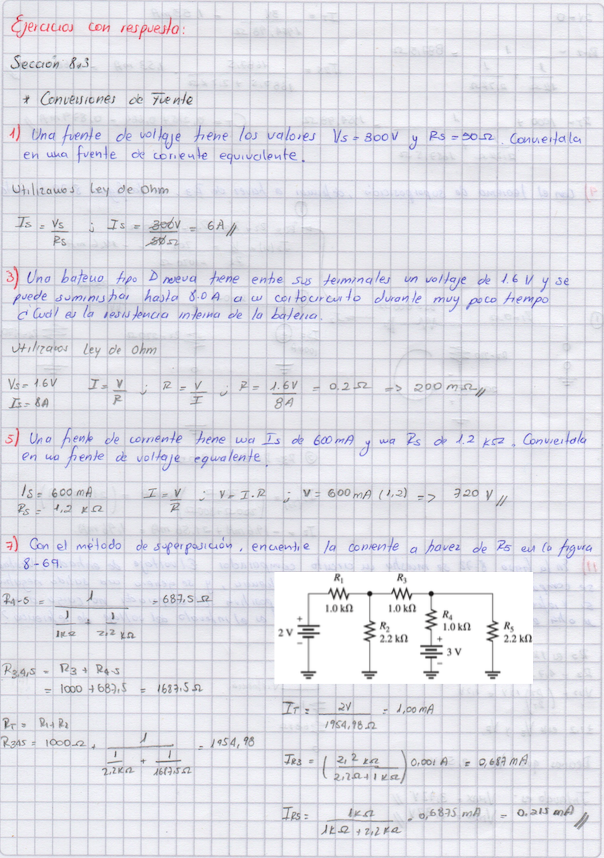 Ejercicios con respuesta:
Sección 8.3
* Conversiones de Fuente
1) Una fuente de voltaje tiene los valores Vs = 300V y Rs = 50Ω. Conviertala
en una fuente de corriente equivalente.
Utilizamos Ley de Ohm
Is = Vs/Rs ; Is = 300V/50Ω = 6A //
3) Una bateria tipo D nueva tiene entre sus terminales un voltaje de 1.6 V y se
puede suministrar hasta 8.0 A a un cortocircuito durante muy poco tiempo
¿Cuál es la resistencia interna de la bateria.
Utilizamos Ley de Ohm
Vs = 1.6V I = V/R ; R = V/I ; R = 1.6V/8A = 0.2Ω => 200 mΩ //
Is = 8A
5) Una fuente de corriente tiene una Is de 600mA y una Rs de 1.2 kΩ. Conviertala
en una fuente de voltaje equivalente.
Is = 600mA I = V/R ; V = I.R ; V = 600mA (1,2) => 720 V //
Rs = 1,2 kΩ
7) Con el método de superposición, encuentre la corriente a través de R5 en la figura
8-69.
R4-5 = 1/(1/1kΩ + 1/2,2kΩ) = 687,5Ω
R3,4,5 = R3 + R4-5
= 1000 + 687,5 = 1687,5Ω
RT = R1+R2
R345 = 1000Ω + 1/(1/2,2kΩ + 1/1687,5Ω) = 1954,98
R1 R3
1.0 kΩ 1.0 kΩ
R4
1.0 kΩ
2 V R2 R5
2.2 kΩ 2.2 kΩ
3 V
IT = 2V/1954,98Ω = 1,00mA
IR3 = (2,2 kΩ/(2,2Ω+1kΩ)) 0,001A = 0,687 mA
IR5 = 1kΩ/(1kΩ + 2,2kΩ) . 0,6875 mA = 0,215 mA //